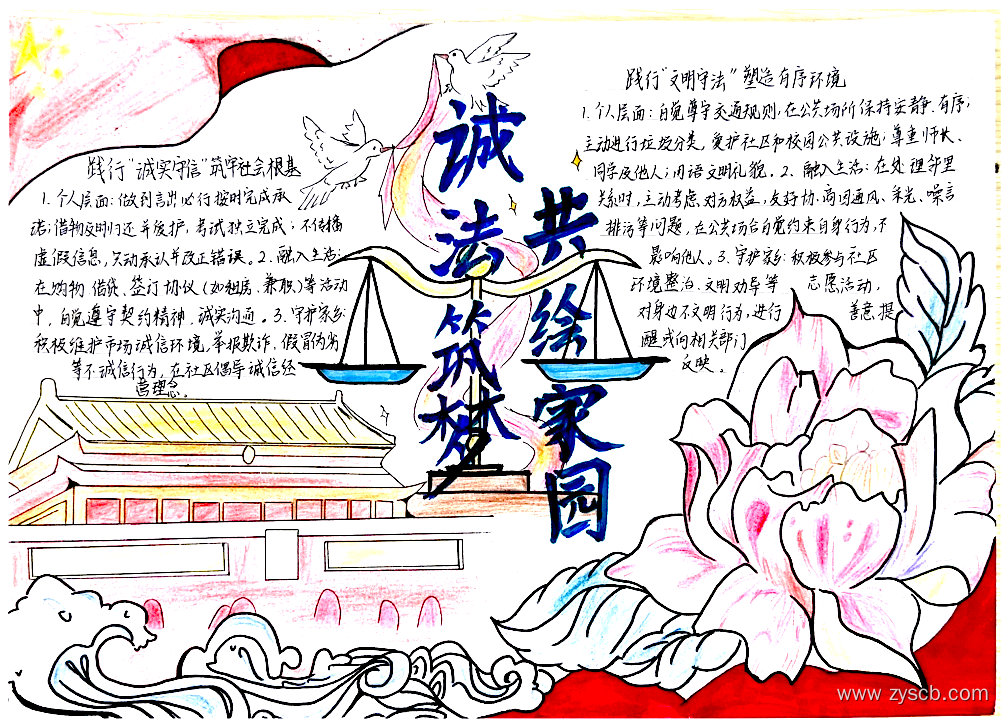 诚法筑梦
共绘家园
践行"诚实守信"筑牢社会根基
1.个人层面:做到言出必行按时完成承
诺;借物文明归还并爱护,考试独立完成;不传播
虚假信息,主动承认并改正错误。2.融入生活:
在购物 借贷、签订协议(如租房、兼职)等活动
中,自觉遵守契约精神,诚实沟通。3.守护家乡:
积极维护市场诚信环境,举报欺诈、假冒伪劣
等不诚信行为,在社区倡导诚信经
营理念。
践行"文明守法"塑造有序环境
1.个人层面:自觉遵守交通规则,在公共场所保持安静、有序;
主动进行垃圾分类,爱护社区和校园公共设施;尊重师长、
同学及他人;用语文明礼貌。2.融入生活:在处理邻里
关系时,主动考虑对方权益,友好协商因通风、采光、噪音
排污等问题,在公共场合自觉约束自身行为,不
影响他人。3.守护家乡:积极参与社区
环境整治、文明劝导等 志愿活动,
对身边不文明行为,进行 善意提
醒或向相关部门
反映。
www.zyscb.com